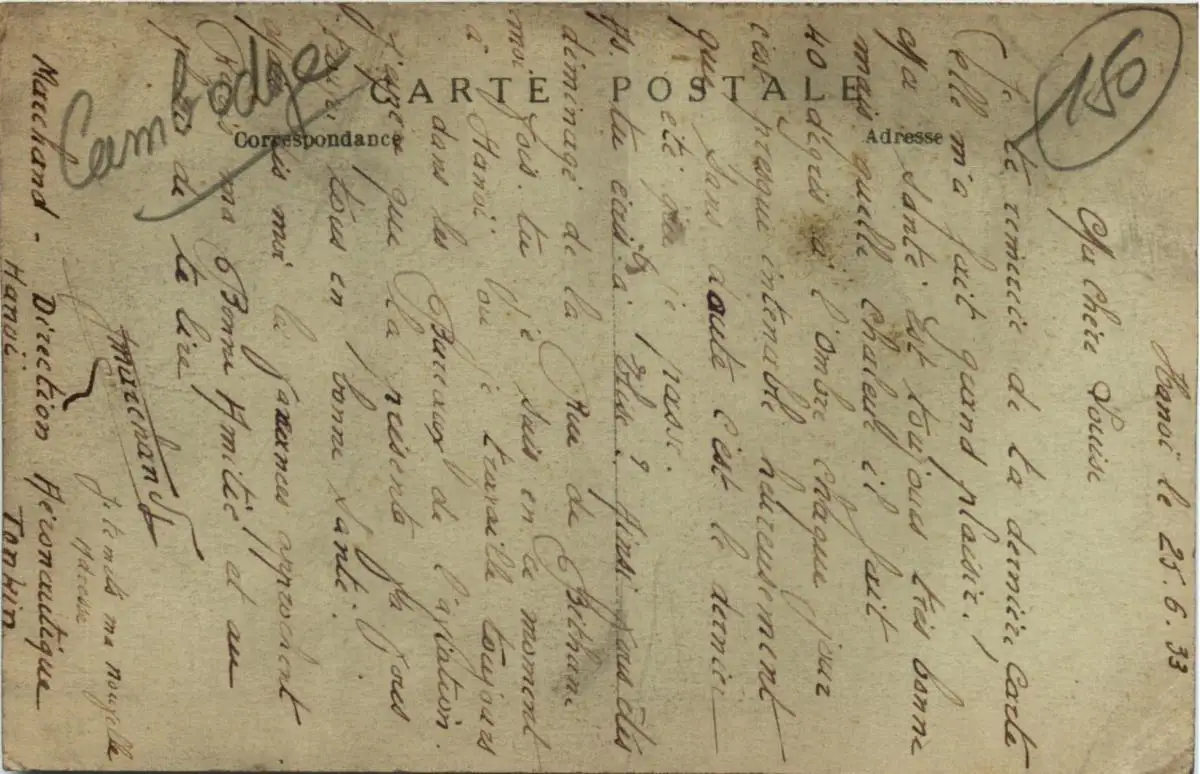 CARTE POSTALE
Correspondance
Adresse
150
Cambodge
Hanoï le 25.6.33
Ma chère Louise
Je te remercie de ta dernière Carte
Celle m'a fait grand plaisir,
Ma santé. Est toujours très bonne
mais quelle chaleur il fait
40 dégrés à l'ombre chaque jour
c'est presque intenable heureusement
que Sans doute c'est le dernier
été que je passe.
tu écris à Ainsi vous êtes
déménagé de la Rue de Béthune
moi fois. tu je suis en ce moment
à Hanoï où je travaille toujours
dans les Bureaux de l'aviation.
que La présente Va Vous
tous en bonne santé.
moi la
ma Bonne Amitié et au
de te lire
Marchand
Je tends ma nouvelle
Adresse
Marchand - Direction Aéronautique
Hanoï Tonkin